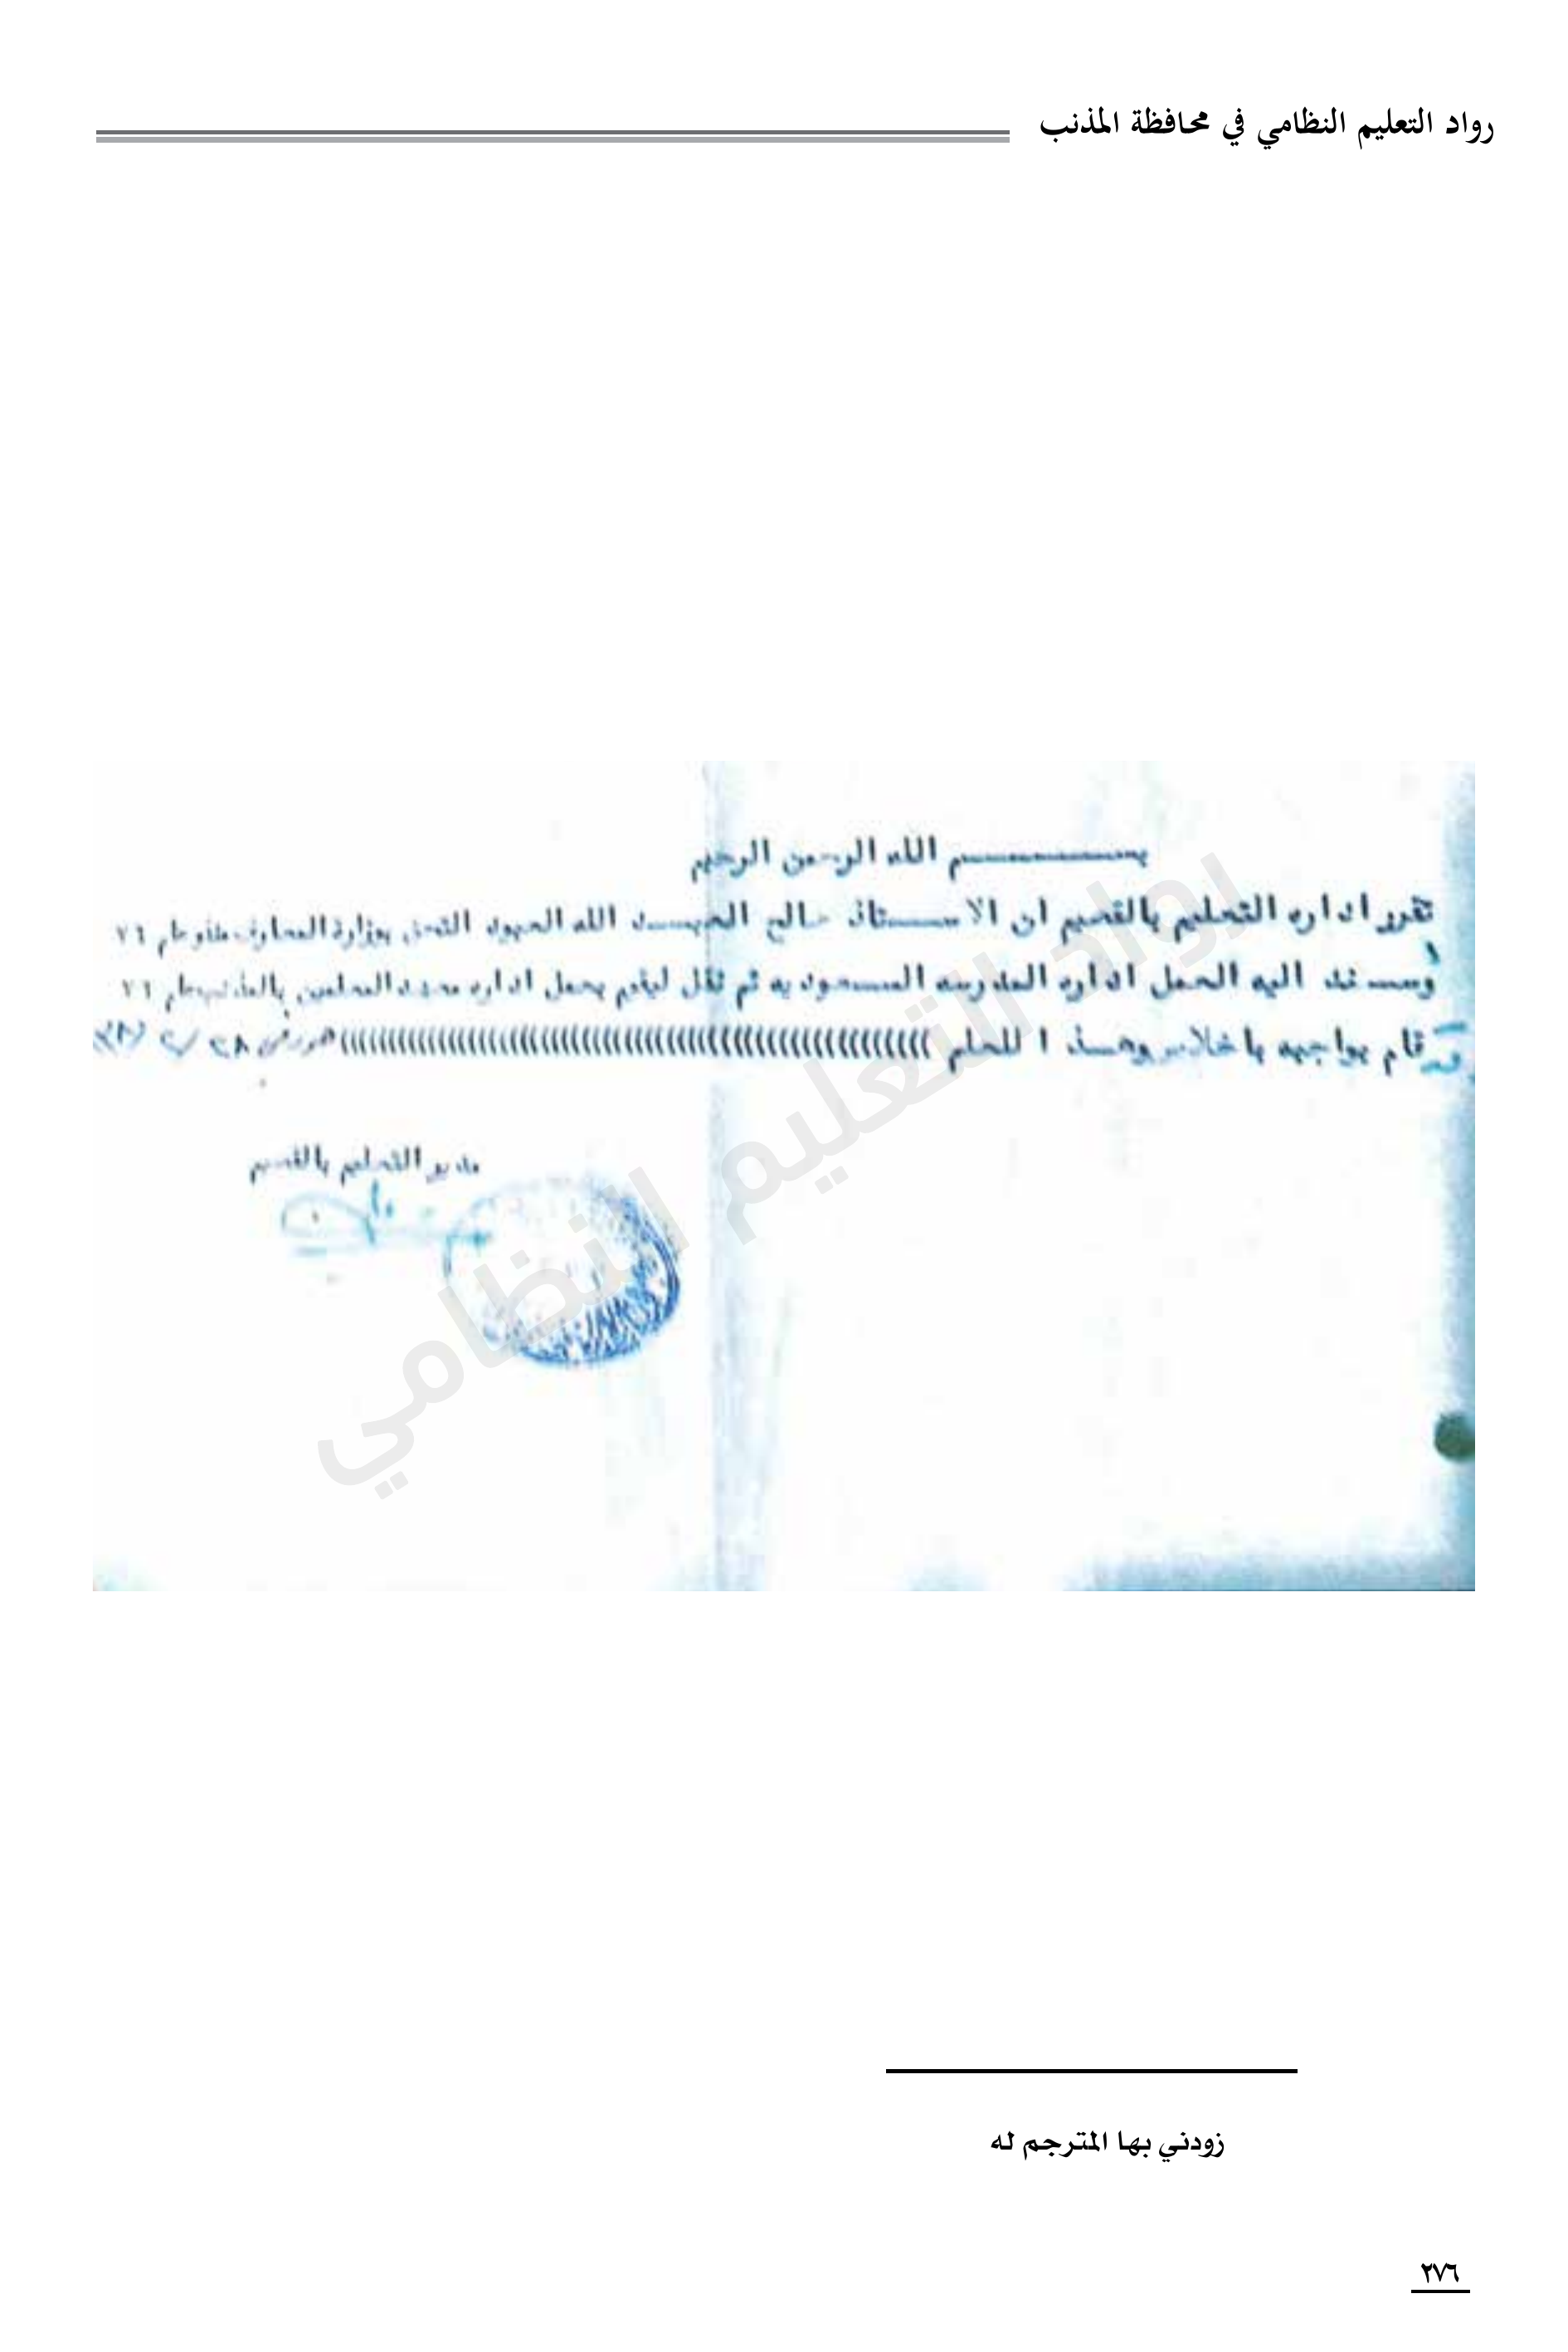 رواد التعليم النظامي في محافظة المذنب
بســـــــم الله الرحمن الرحيم
تقرر اداره التعليم بالقصيم ان الاســـتاذ صالح العبـــد الله الحمود التحق بوزارة المعارف منذ عام ٧٦
وســند اليه العمل اداره المدرسه السعوديه ثم نقل ليقوم بعمل اداره معهد المعلمين بالمذنب عام ٧٦
وقد قام بواجبه باخلاص وهــذا للعلم ((((((((((((((((((((((((((((((((((((((((((((((((((((((
مدير التعليم بالقصيم
رواد التعليم النظامي
زودني بها المترجم له
٢٧٦